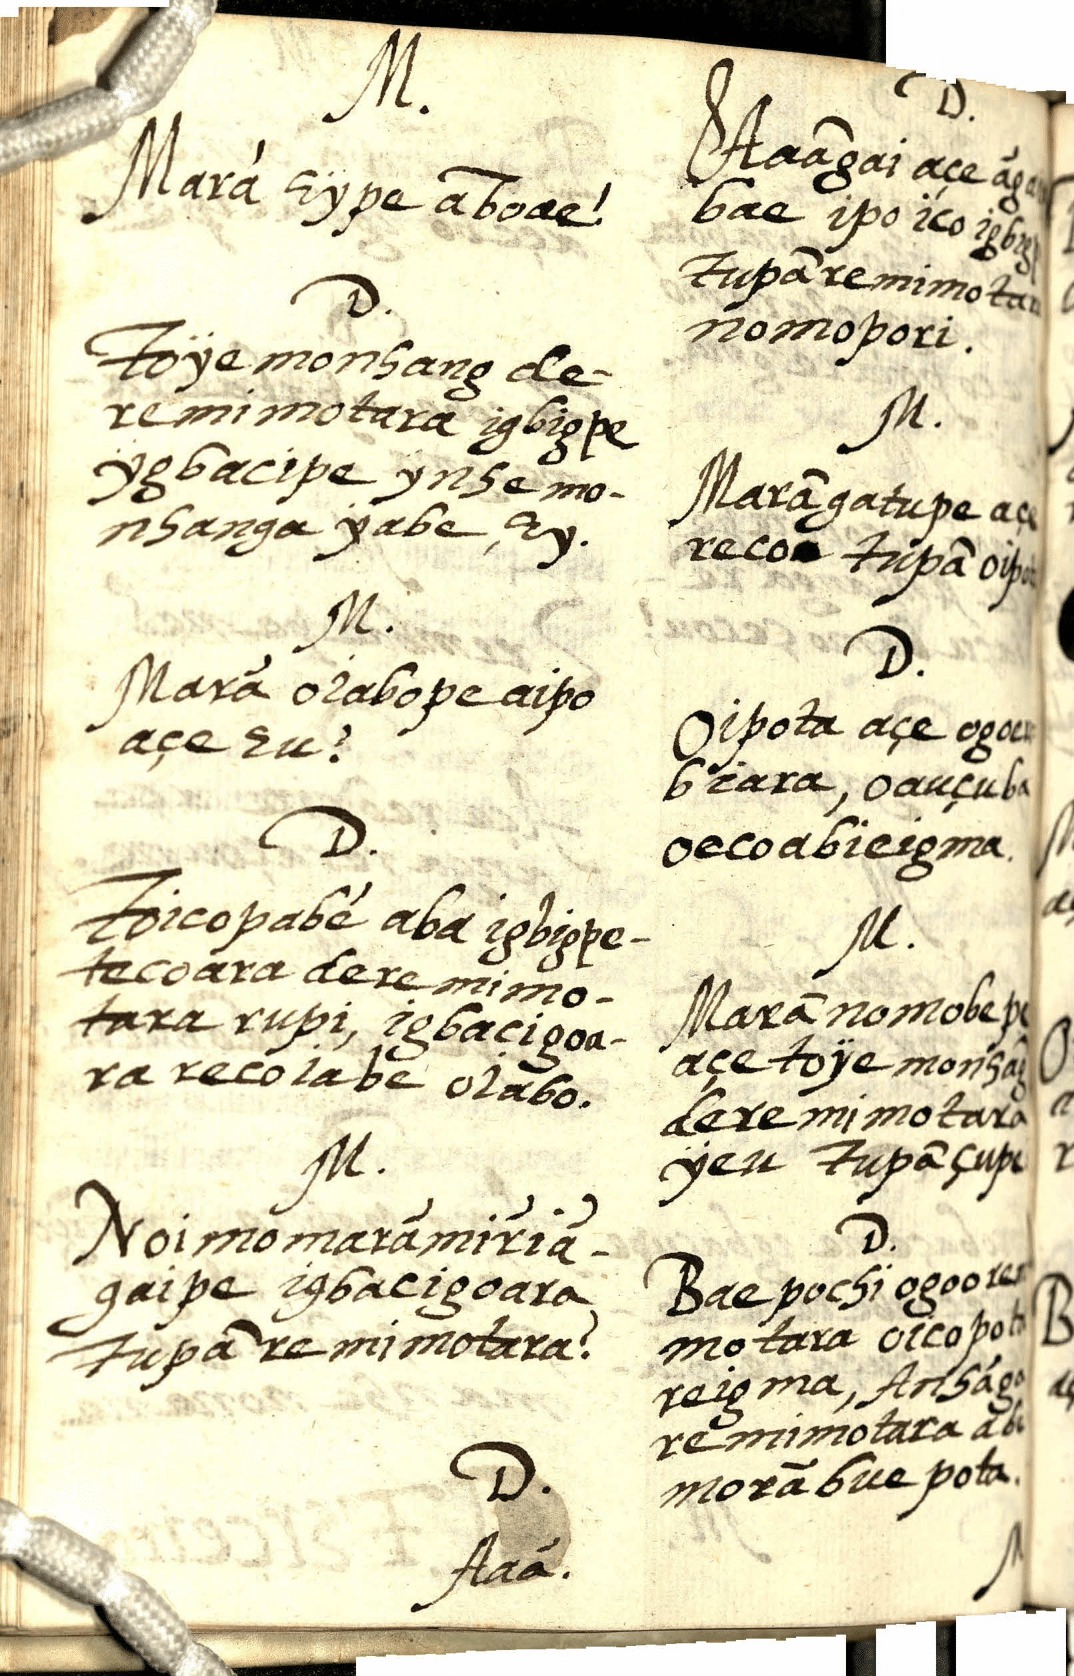 M.
Mará εÿpe aboae?
D.
Toÿe monhang de-
remimotara igbigpe
ÿgbacipe ÿnhemo-
nhanga ÿabe, εy.
M.
Marã oiabope aipo
açe εu?
D.
Toicopabé aba igbigpe-
tecoara deremimo-
tara rupi, igbacigoa-
ra recoiabe oiabo.
M.
Noimomarãmiriã-
gaipe igbacigoara
tupã remimotara?
D.
Aaá.
D.
Aaãgai açe
bae ipo ico
tupã
nomopori.
M.
Marãgatupe
reco tupã
D.
Oipota açe
biara, oauçuba
oecoabieigma.
M.
Marã nomobepe
açe toÿe
deremimotara
ÿeu tupã çupe
D.
Bae pochi
motara
reigma,
remimotara
morã bue pota.
M